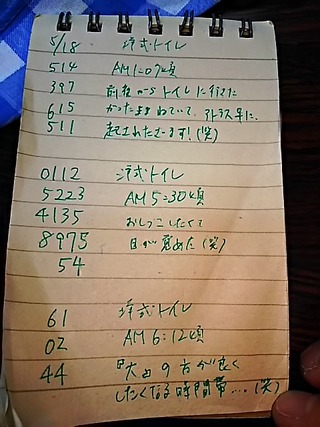 5/18 洋式トイレ
514 AM1:09頃
397 前夜からトイレに行きた
615 かったままねていて、
511 起こされたさいます!(笑)
0112 洋式トイレ
5223 AM5:30頃
4135 おしっこしたくて
8975 目が覚めた(笑)
54
61 洋式トイレ
02 AM6:12頃
44 『大』の方が良く
したくなる時間帯…(笑)